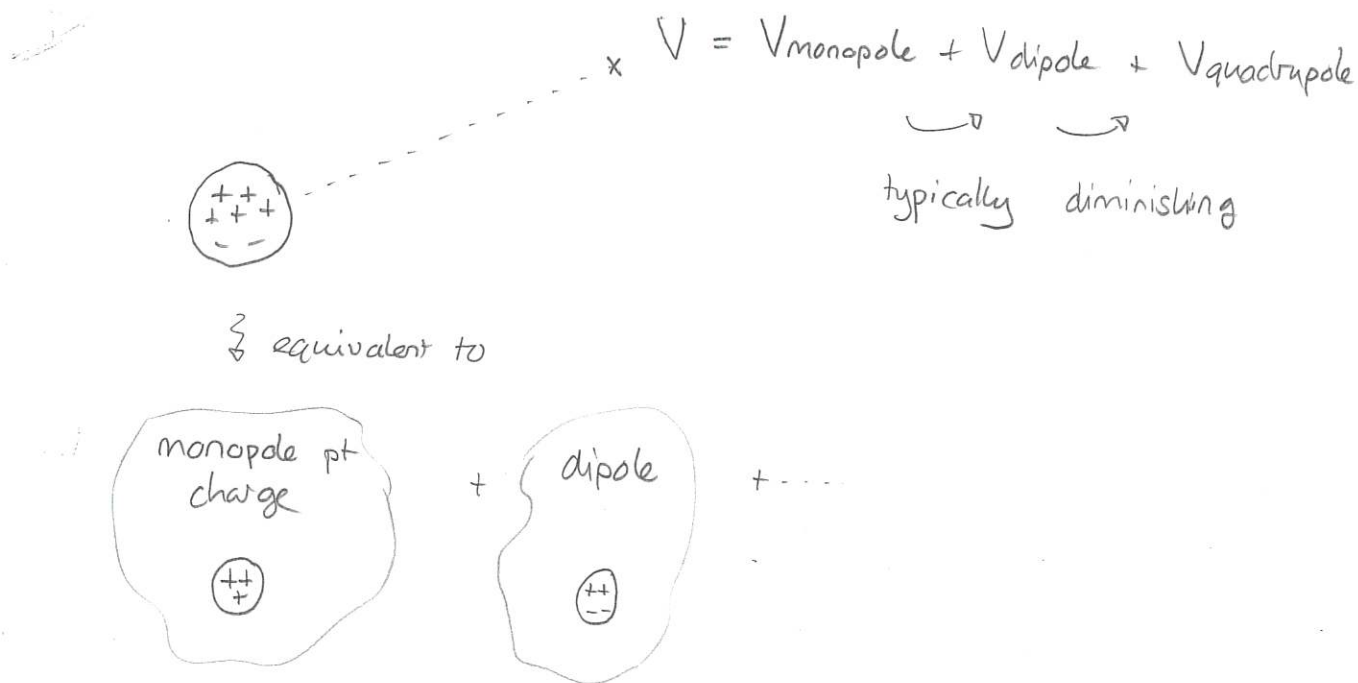 x V = Vmonopole + Vdipole + Vquadrupole
typically diminishing
+ +
+ + +
- -
equivalent to
monopole pt
charge
+ dipole + - - - -
++
+
++
--